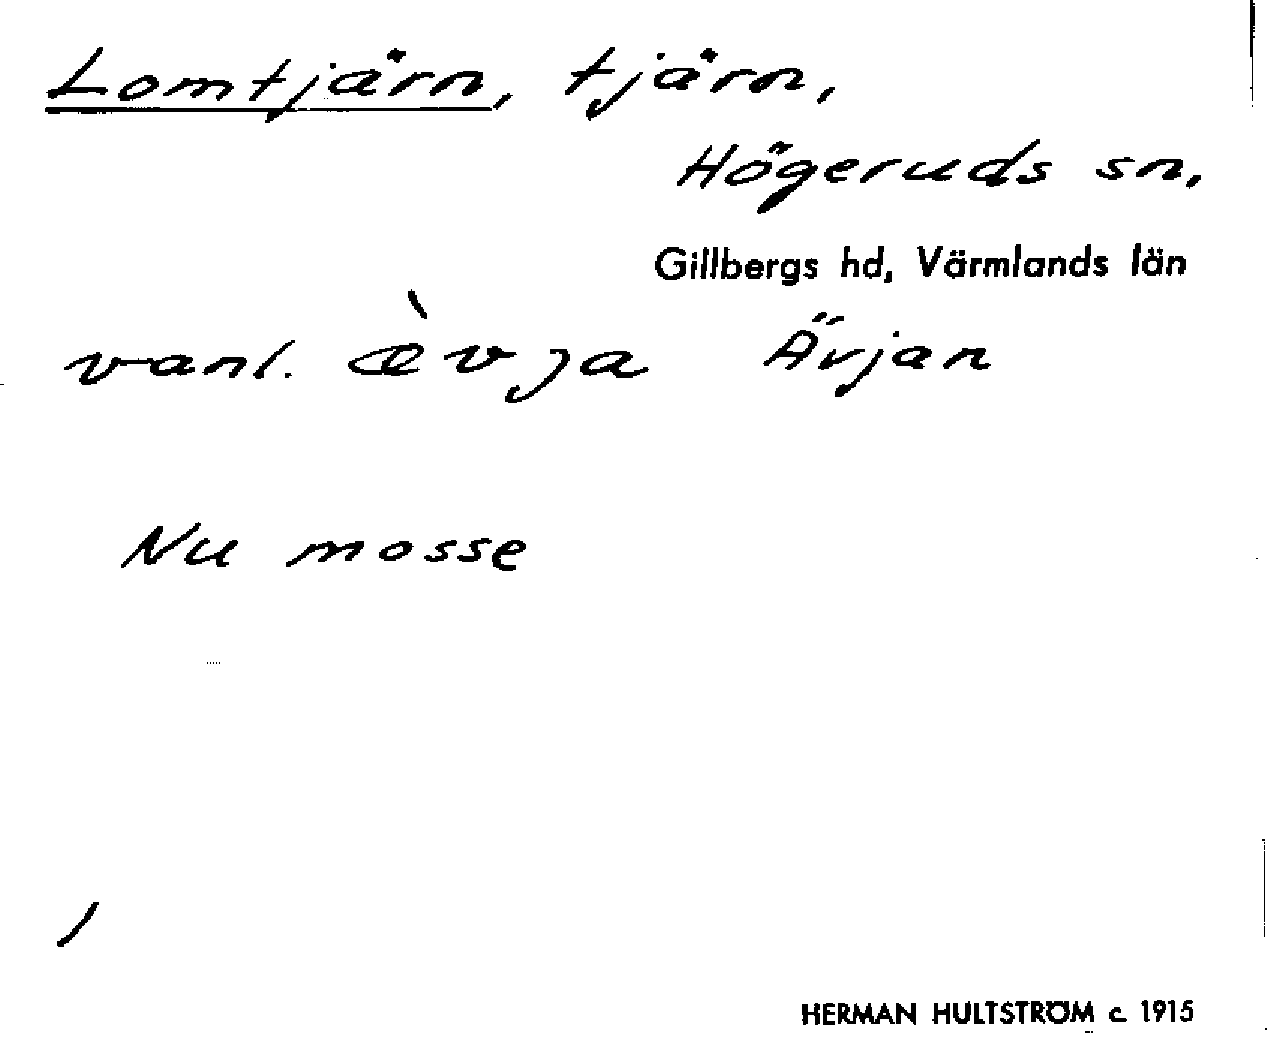 Lomtjärn, tjärn,
Högeruds sn,
Gillbergs hd, Värmlands län
vanl. æ̀vja Ävjan
Nu mosse
/
HERMAN HULTSTRÖM c. 1915